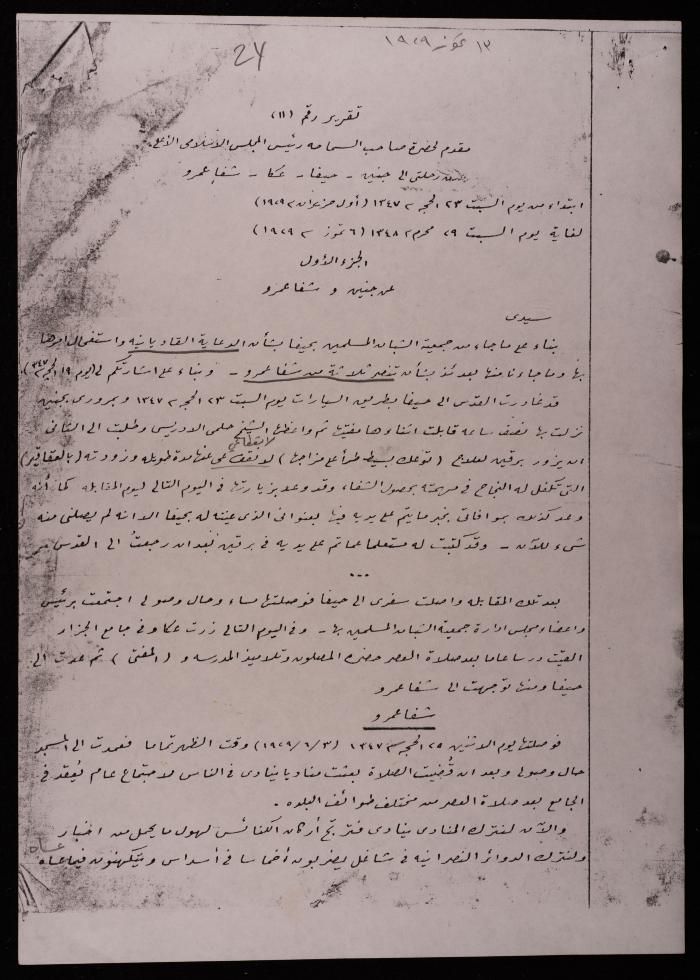 ١٣ تموز ١٩٢٩
24
تقرير رقم (١١)
مقدم لحضرة صاحب السماحه رئيس المجلس الاسلامى الأعلى
عن رحلتى الى جنين - حيفا - عكا - شفا عمرو
ابتداء من يوم السبت ٢٣ الحجه ١٣٤٧ (أول حزيران ١٩٢٩)
لغاية يوم السبت ٢٩ محرم ١٣٤٨ (٦ تموز ١٩٢٩)
الجزء الأول
عن جنين و شفا عمرو
سيدى
بناء على ما جاء من جمعية الشبان المسلمين بحيفا بشأن الدعاية القاديانيه واستفحال امرها
بها وما جاءنا منها بعدئذ بشأن تنصر ثلاثة من شفا عمرو - وبناء على اشارتكم لى (يوم ١٩ الحجه ٣٤٧)
قد غادرت القدس الى حيفا بطريق السيارات يوم السبت ٢٣ الحجه ١٣٤٧ وبمرورى بجنين
نزلت بها نصف ساعه قابلت اثناءها مفتيها ثم واعظها الشيخ حلمى الادريسى وطلبت الى الثانى
ان يزور برقين لعلاج (توعك بسيط طرأ على مزاجها) لانقطاعى عنها مدة طويله وزودته (بالعقاقير)
التى تكفل له النجاح فى مهمته بحصول الشفاء وقد وعد بزيارتها فى اليوم التالى ليوم المقابله كما أنه
وعد كذلك بموافاتى بخبر ما يتم على يديه فيها بعنوانى الذى عينته له بحيفا الا انه لم يصلنى منه
شىء للآن - وقد كتبت له مستعلما عما تم على يديه فى برقين بعد ان رجعت الى القدس
...
بعد تلك المقابله واصلت سفرى الى حيفا فوصلتها مساء وحال وصولى اجتمعت برئيس
واعضاء مجلس ادارة جمعية الشبان المسلمين بها - وفى اليوم التالى زرت عكا وفى جامع الجزار
القيت درسا عاما بعد صلاة العصر حضره المصلون وتلاميذ المدرسه و (المفتى) ثم عدت الى
حيفا ومنها توجهت الى شفا عمرو
شفا عمرو
فوصلتها يوم الاثنين ٢٥ الحجه سنه ١٣٤٧ (١٩٢٩/٦/٣) وقت الظهر تماما فعمدت الى المسجد
حال وصولى وبعد ان قُضيت الصلاة بعثت مناديا ينادى فى الناس لاجتماع عام يُعقد فى
الجامع بعد صلاة العصر من مختلف طوائف البلده .
والآن لنترك المنادى ينادى فترتج أركان الكنائس لهول ما يحمل من اخبار
ولنترك الدوائر النصرانيه فى شاغل يضربون أخماسا فى أسداس ويتكهنون فيما عساه